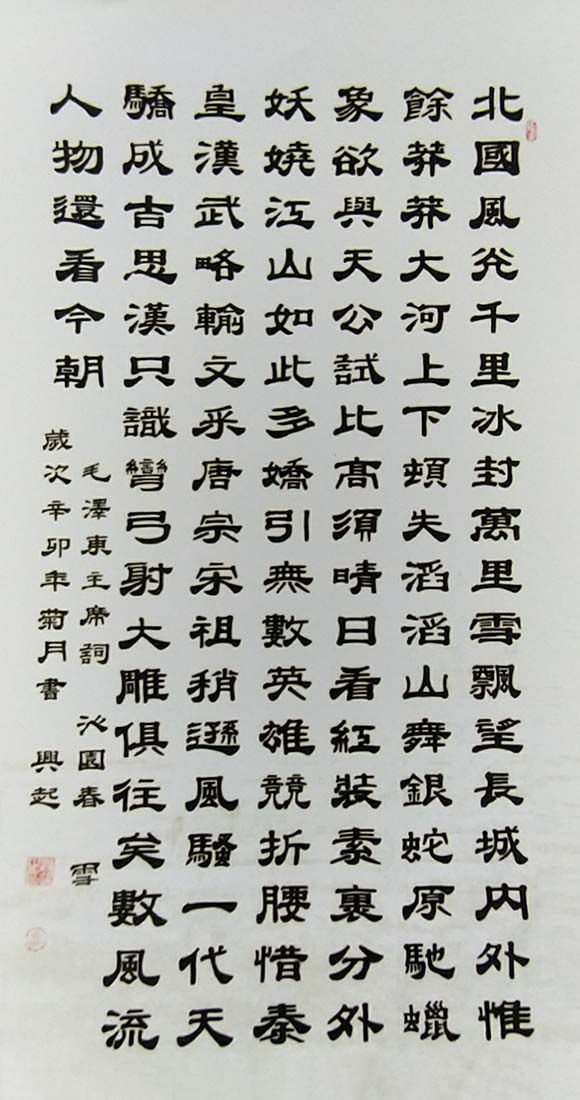 北國風光千里冰封萬里雪飄望長城內外惟
餘莽莽大河上下頓失滔滔山舞銀蛇原馳蠟
象欲與天公試比髙須晴日看紅裝素裏分外
妖嬈江山如此多嬌引無數英雄競折腰惜秦
皇漢武略輸文采唐宗宋祖稍遜風騷一代天
驕成吉思漢只識彎弓射大雕俱往矣數風流
人物還看今朝
毛澤東主席詞 沁園春 雪
歲次辛卯年菊月書 興起